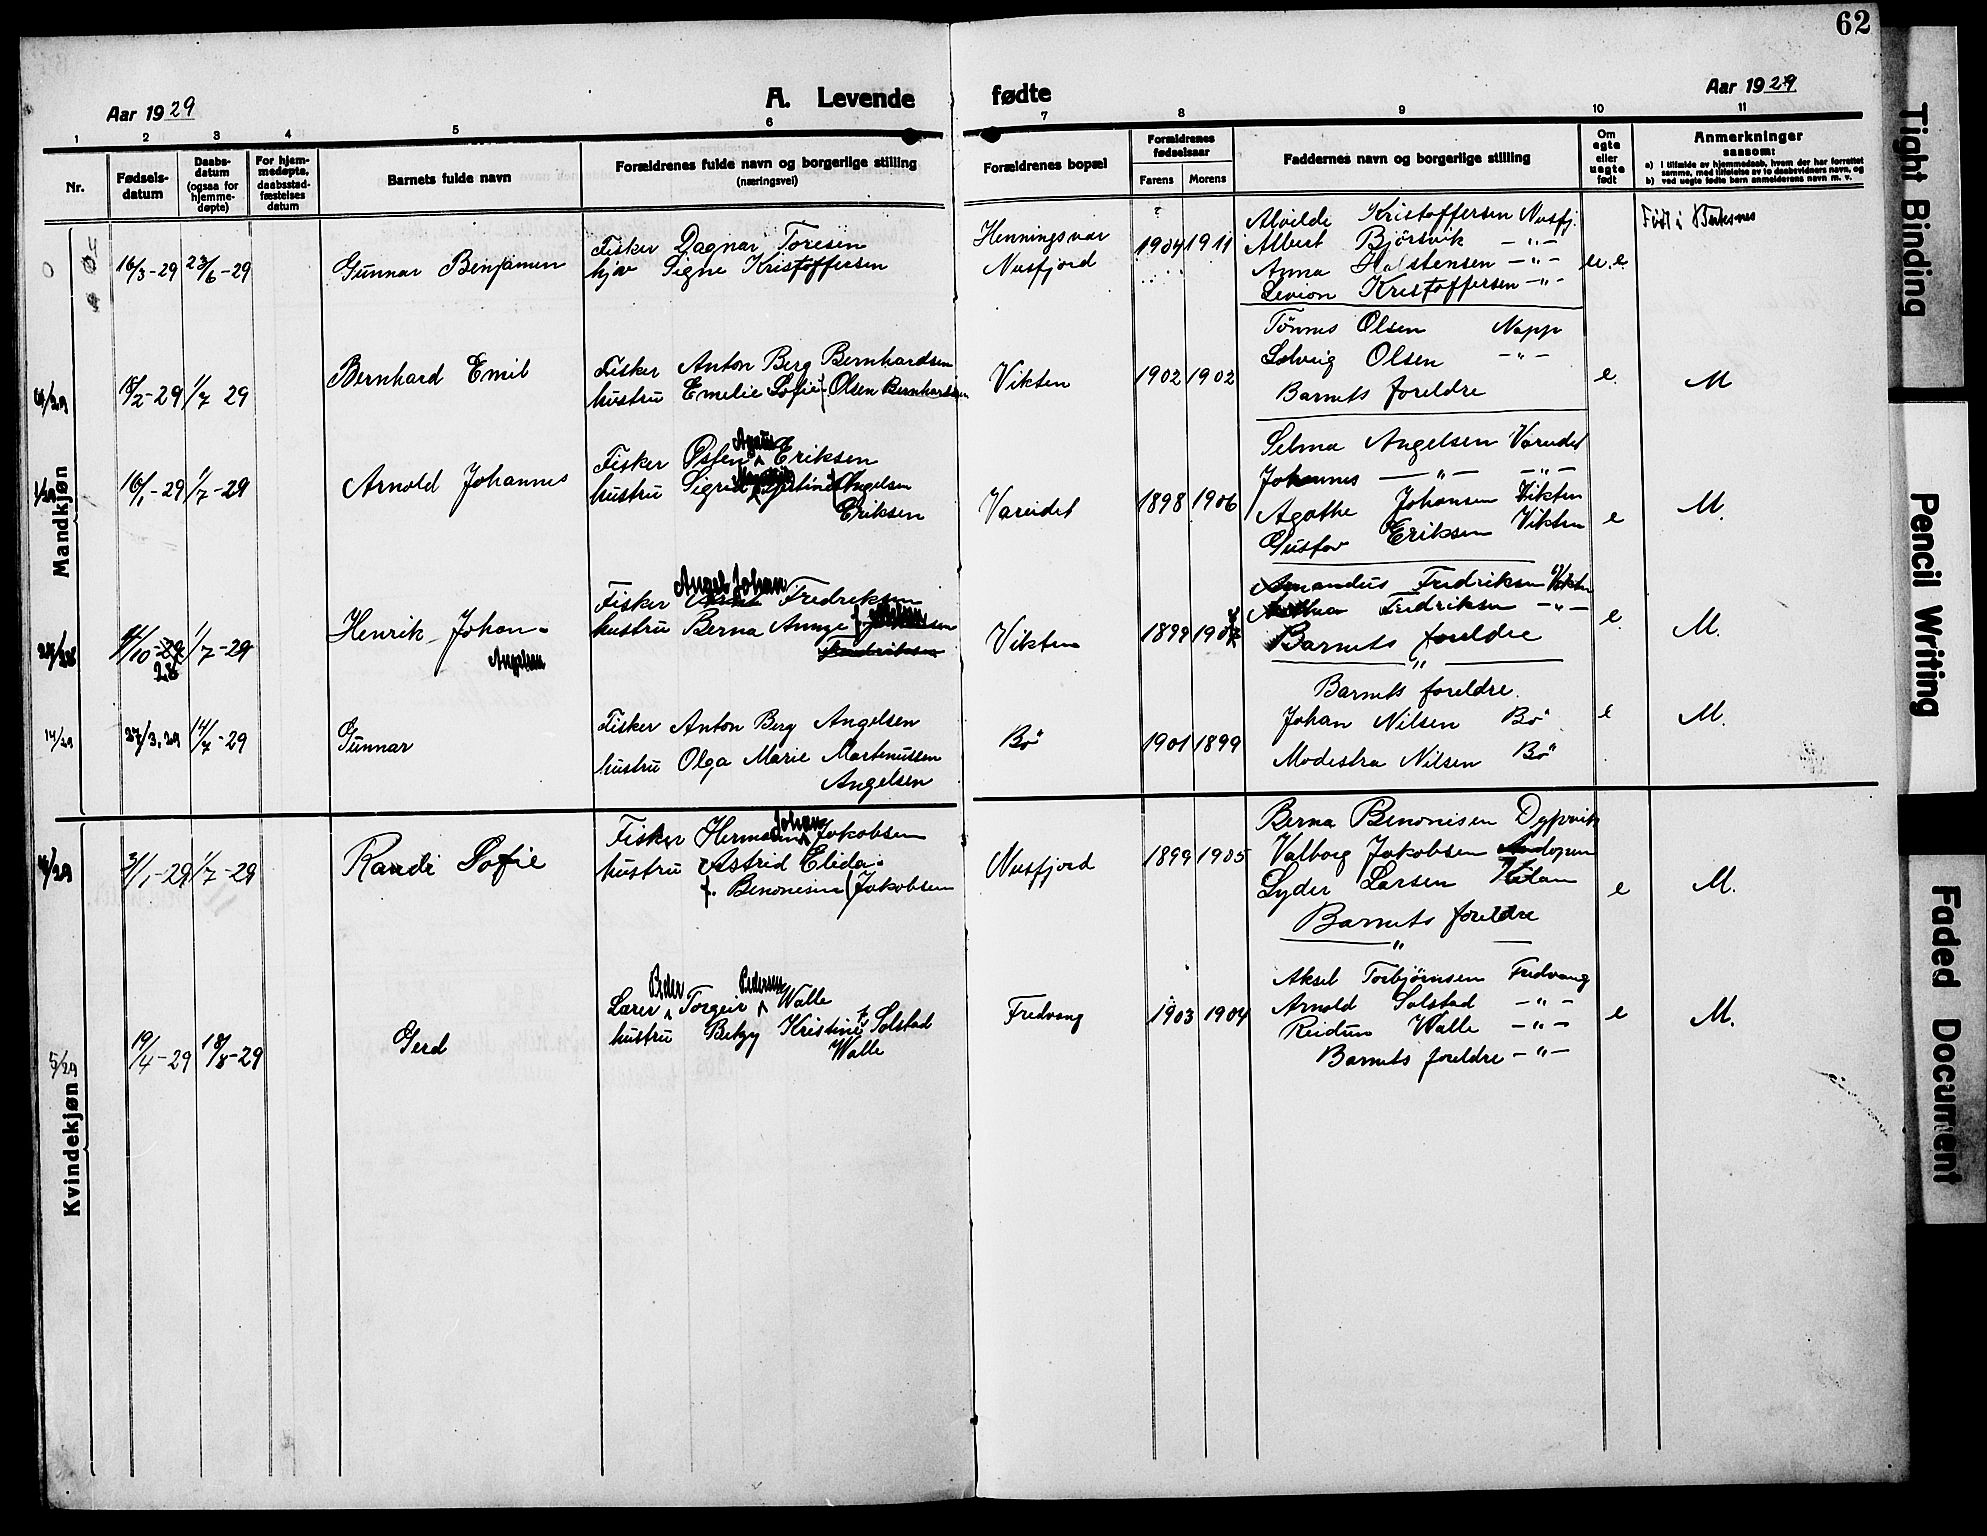 62
Aar 1929
A. Levende fødte
Aar 1929
1 2 3 4 5 6 7 8 9 10 11
Nr.
Fødsels-datum
Daabs-datum (ogsaa for hjemme-døpte)
For hjem-medøpte, daabsstad-fæstelses datum
Barnets fulde navn
Forældrenes fulde navn og borgerlige stilling
(næringsvei)
Forældrenes bopæl
Forældrenes fødselsaar
Farens Morens
Faddernes navn og borgerlige stilling
Om ægte eller uægte født
Anmerkninger
saasom:
a) i tilfælde av hjemmedaab, hvem der har forrettet samme, med tilføielse av to daabsvidners navn, og
b) ved uægte fødte barn anmelderens navn m. v.
Mandkjøn
16/3-29 23/6-29
Gunnar Benjamen
Fisker Dagnar Toresen
hjv Signe Kristoffersen
Henningsvær
Nusfjord
1904 1911
Alvilde Kristoffersen Nusfj.
Albert Björsvik -"-
Anna Halstensen -"-
Levion Kristoffersen -"-
u.e
Født i
1/7 29
Bernhard Emil
Fisker Anton Berg Bernhardsen
hustru Emelie Sofie Olsen Bernhardsen
Vikten
1902 1902
Tönnes Olsen Napp
Solveig Olsen -"-
Barnets foreldre
e.
M
1/29
16/1-29 1/7-29
Arnold Johannes
Fisker Osfen Eriksen
hustru Sigrid Angelsen
Eriksen
Vareidet
1898 1906
Selma Angelsen Vareidet
Johannes -"- -"-
Agathe Johansen Vikten
Gustav Eriksen Vikten
e
M.
1/7-29
28
Henrik Johan
Angelsen
Angel Johan
Fisker Fredriksen
hustru Berna Annge
Fredriksen
Vikten
1899
Amandus Fredriksen Vikten
Fredriksen -"-
Barnets foreldre
"
e.
M.
14/29
27/3.29 14/7-29
Gunnar
Fisker Anton Berg Angelsen
hustru Olga Marie Martenussen
Angelsen
Bö
1901 1899
Barnets foreldre.
Johan Nilsen Bö
Modestra Nilsen Bö
e
M.
Kvindekjøn
3/1-29 1/7-29
Randi Sofie
Johan
Fisker Herman Jakobsen
hustru Astrid Elida
f. Benonisen Jakobsen
Nusfjord
1899 1905
Berna Benonisen Dypvik
Valborg Jakobsen Andopen
Lyder Larsen
Barnets foreldre
"
e
M.
5/29
19/4-29 18/8-29
Gerd
Peder Pedersen
Lærer Torgeir Walle
hustru Betzy Kristine f. Solstad
Walle
Fredvang
1903 1904
Aksel Torbjörnsen Fredvang
Arnold Solstad -"-
Reidun Walle -"-
Barnets foreldre -"-
e
M.
Tight Binding
Pencil Writing
Faded Document